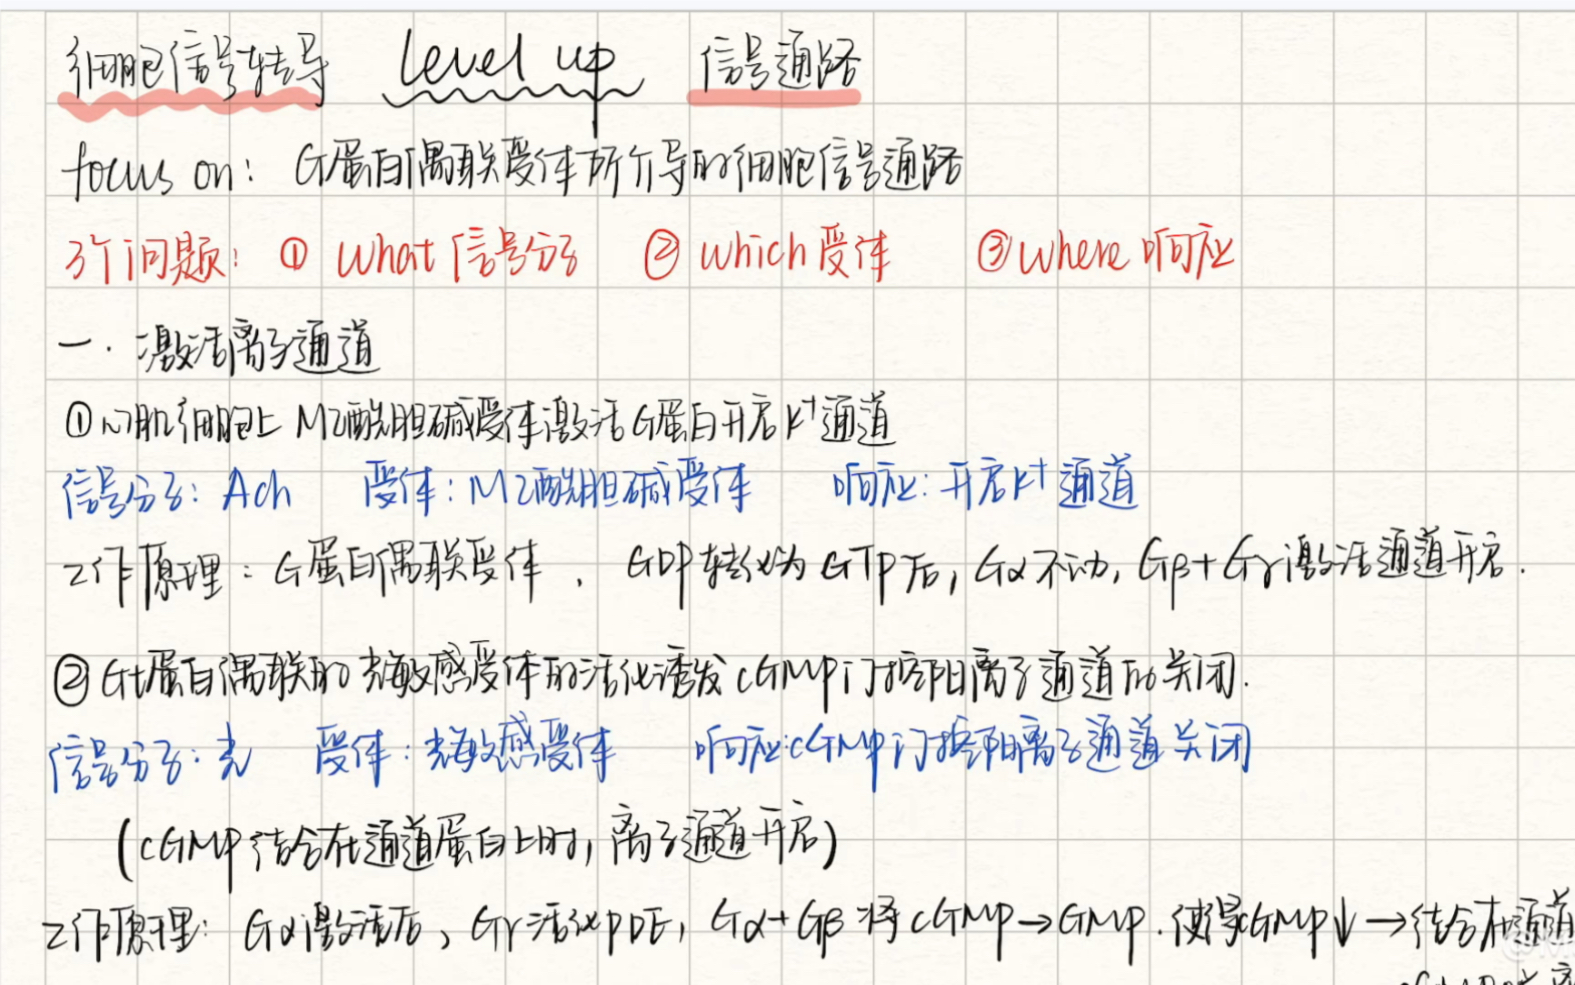 细胞信号转导 level up 信号通路
focus on: G蛋白偶联受体所介导的细胞信号通路
3个问题: ① What 信号分子 ② which 受体 ③ where 响应
一. 激活离子通道
① 心肌细胞上 M2酰胆碱受体激活G蛋白开启K⁺通道
信号分子: Ach 受体: M2酰胆碱受体 响应: 开启K⁺通道
工作原理: G蛋白偶联受体, GDP转化为GTP后, Gα不动, Gβ+Gγ激活通道开启.
② Gt蛋白偶联的光敏感受体的活化诱发cGMP门控阳离子通道的关闭.
信号分子: 光 受体: 光敏感受体 响应: cGMP门控阳离子通道关闭
(cGMP结合在通道蛋白上时, 离子通道开启)
工作原理: Gα激活后、Gγ活化PDE, Gα+Gβ将cGMP→GMP. 使得cGMP↓→结合在通道